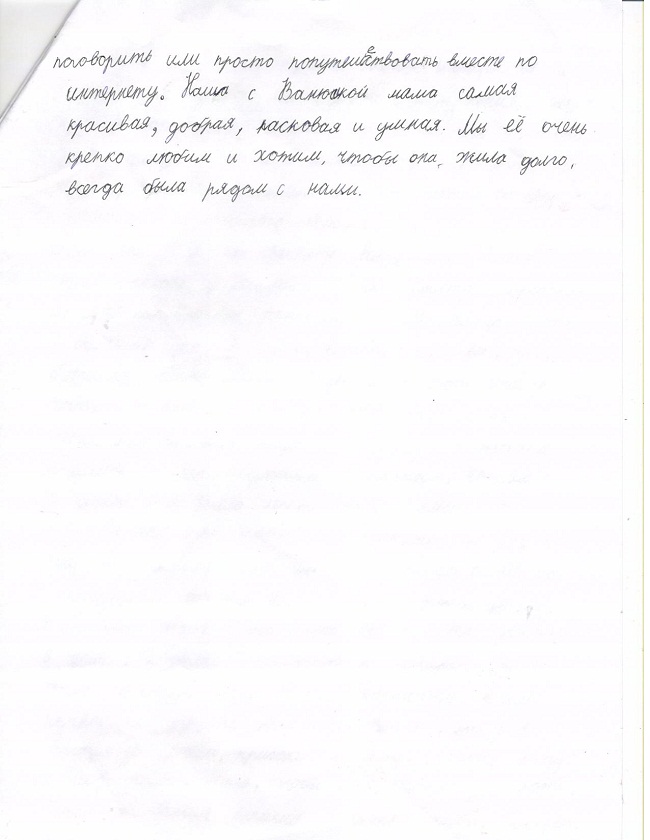 поговорить или просто попутешествовать вместе по
интернету. Наша с Ванюшкой мама самая
красивая, добрая, ласковая и умная. Мы её очень
крепко любим и хотим, чтобы она, жила долго,
всегда была рядом с нами.